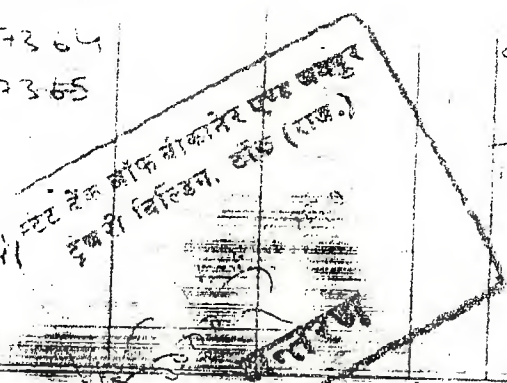 7364
7365
स्टेट बैंक ऑफ बीकानेर एण्ड जयपुर
ट्रेजरी बिल्डिंग, टोंक (राज.)